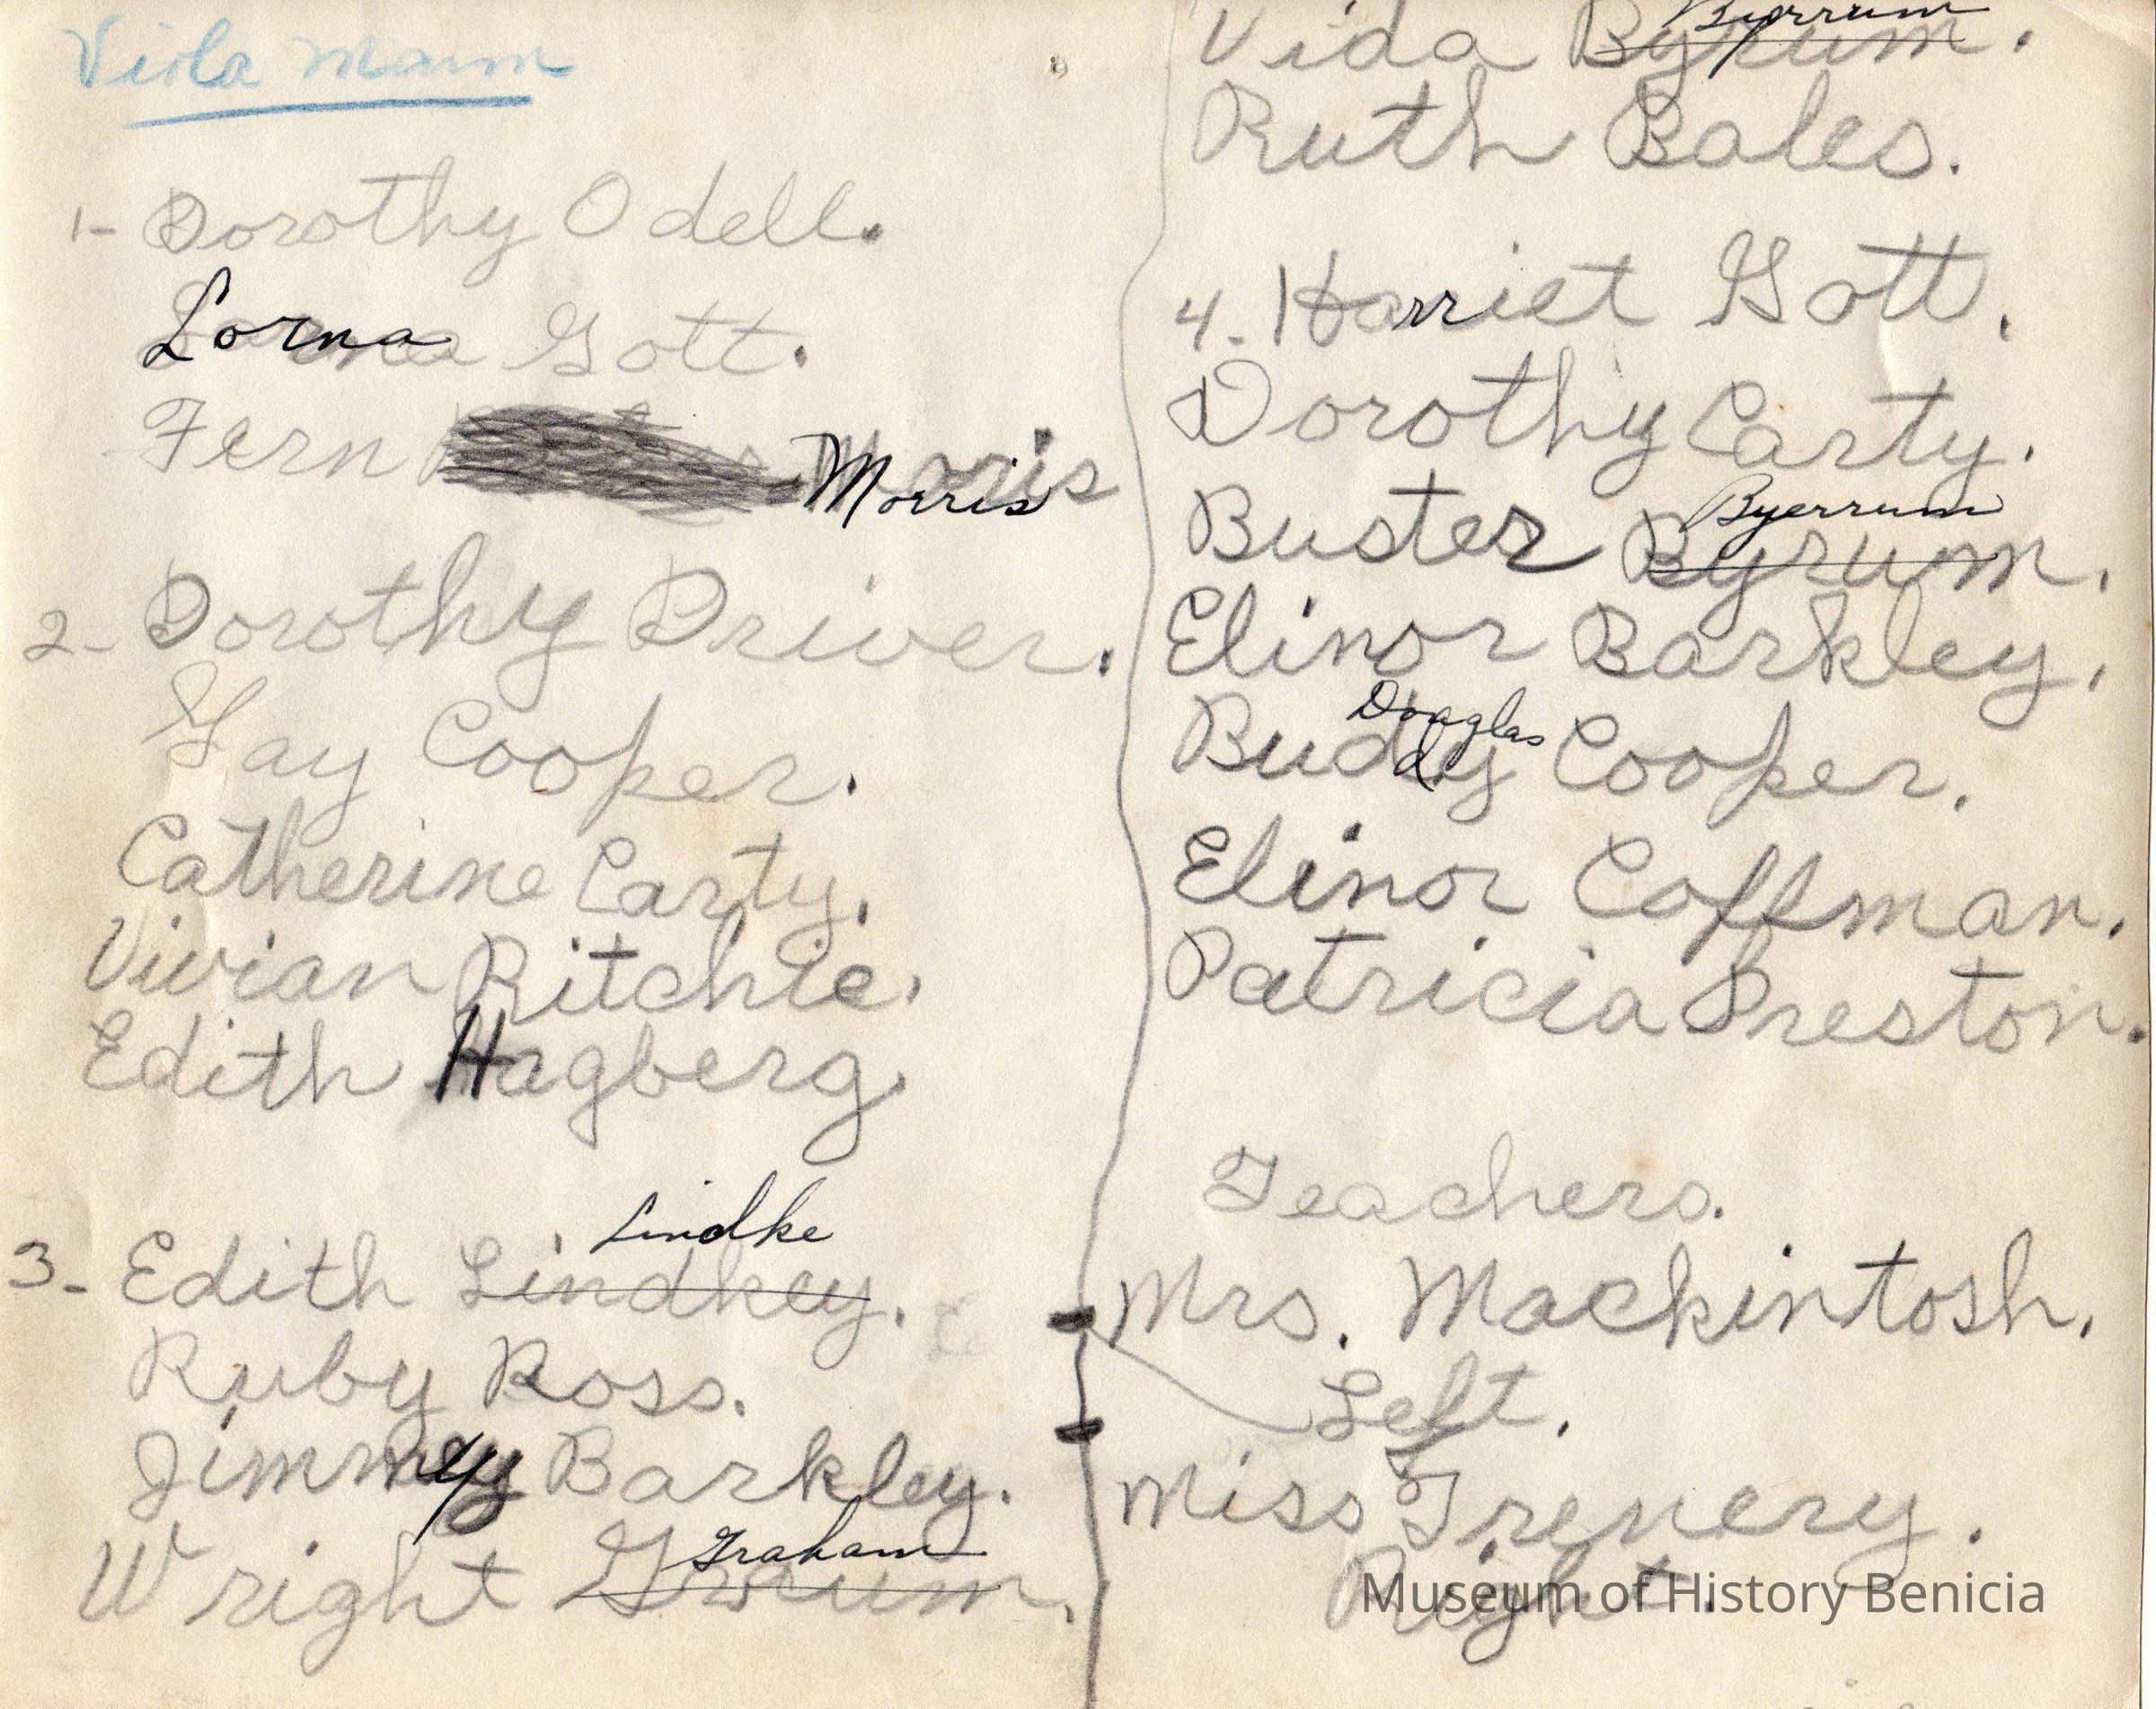 Viola Mann
1- Dorothy Odell.
Lorna Gott.
Fern Morris Morris
2- Dorothy Driver.
Gay Cooper.
Catherine Carty.
Vivian Ritchie.
Edith Hagberg.
Lindke
3- Edith Lindkey.
Ruby Ross.
Jimmy Barkley.
Graham
Wright Graum.
Byerrum
Vida Byrum.
Ruth Bales.
4- Harriet Gott.
Dorothy Carty.
Byerrum
Buster Byrum.
Elinor Barkley.
Douglas
Buddy Cooper.
Elinor Coffman.
Patricia Preston.
Teachers.
Mrs. Mackintosh.
Left.
Miss Trenery.
Right.
Museum of History Benicia